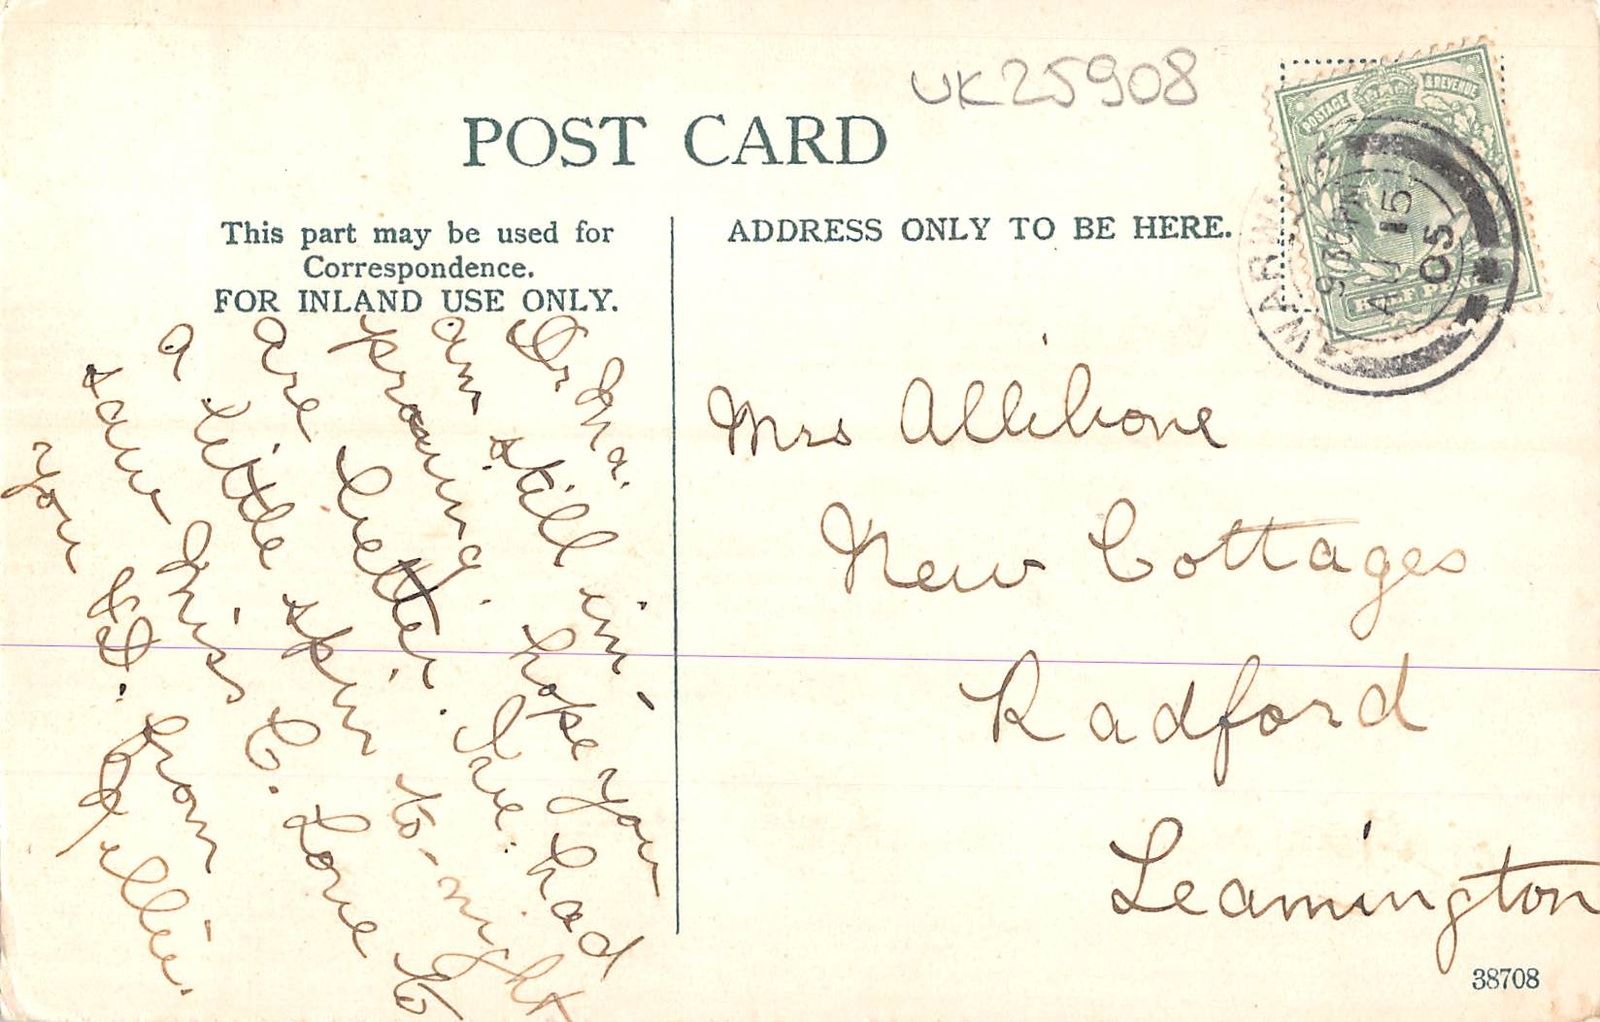 UK25908
POST CARD
This part may be used for
Correspondence.
FOR INLAND USE ONLY.
ADDRESS ONLY TO BE HERE.
POSTAGE & REVENUE
HALF PENNY
WARWICK
9 30 PM
AU 15
05
Dr Ma.
am still im-
proving. hope you
are better. I've had
a little spin to-night
saw Miss C. Love to
you & D. from
Nellie.
Mrs Allibone
New Cottages
Radford
Leamington
38708